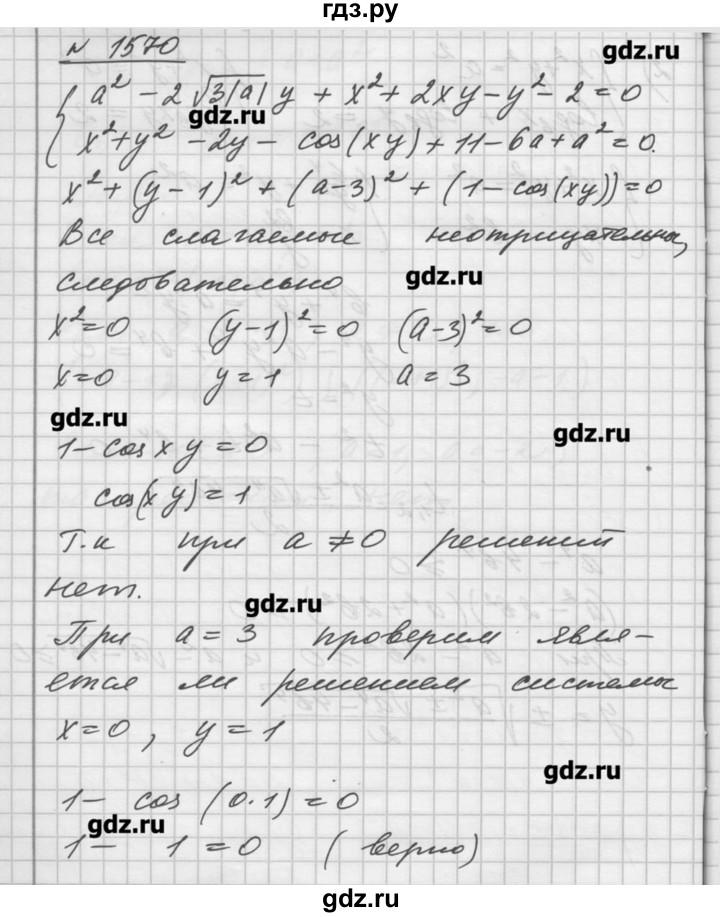 гдз.ру
№ 1570
gdz.ru
a² - 2√3|a| y + x² + 2xy - y² - 2 = 0
gdz.ru
x² + y² - 2y - cos(xy) + 11 - 6a + a² = 0.
x² + (y - 1)² + (a - 3)² + (1 - cos(xy)) = 0
Все слагаемые неотрицательны,
следовательно
gdz.ru
x² = 0 (y - 1)² = 0 (a - 3)² = 0
x = 0 y = 1 a = 3
gdz.ru
gdz.ru
1 - cos x y = 0
cos(xy) = 1
Т.к при a ≠ 0 решений
нет.
gdz.ru
При a = 3 проверим явля-
ется ли решением системы
x = 0, y = 1
gdz.ru
1 - cos (0·1) = 0
gdz.ru
1 - 1 = 0 (верно)
gdz.ru